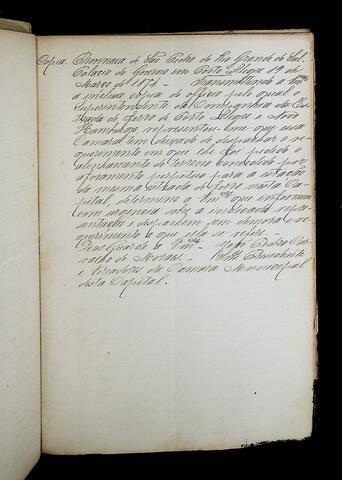 Copia. Provincia de São Pedro do Rio Grande do Sul.
Palacio do Governo em Porto Alegre 19 de
Março de 1874. Transmittindo a Vm.ces
a inclusa copia do officio pelo qual o
Superintendente da Companhia da Es-
trada de ferro de Porto Alegre a Novo
Hamburgo representou-me que essa
Camara tem deixado de despachar o re-
querimento em que lhe foi pedido o
alinhamento do terreno concedido por
aforamento perpetuo para a estação
da mesma estrada de ferro nesta Ca-
pital, determino a Vm.ces que informem
com urgencia sobre a indicada repre-
sentação e despachem sem demora o re-
querimento a que ella se refere.
Deos Guarde a Vm.ces João Pedro Car-
valho de Moraes. Presidente
e Vereadores da Camara Municipal
desta Capital.